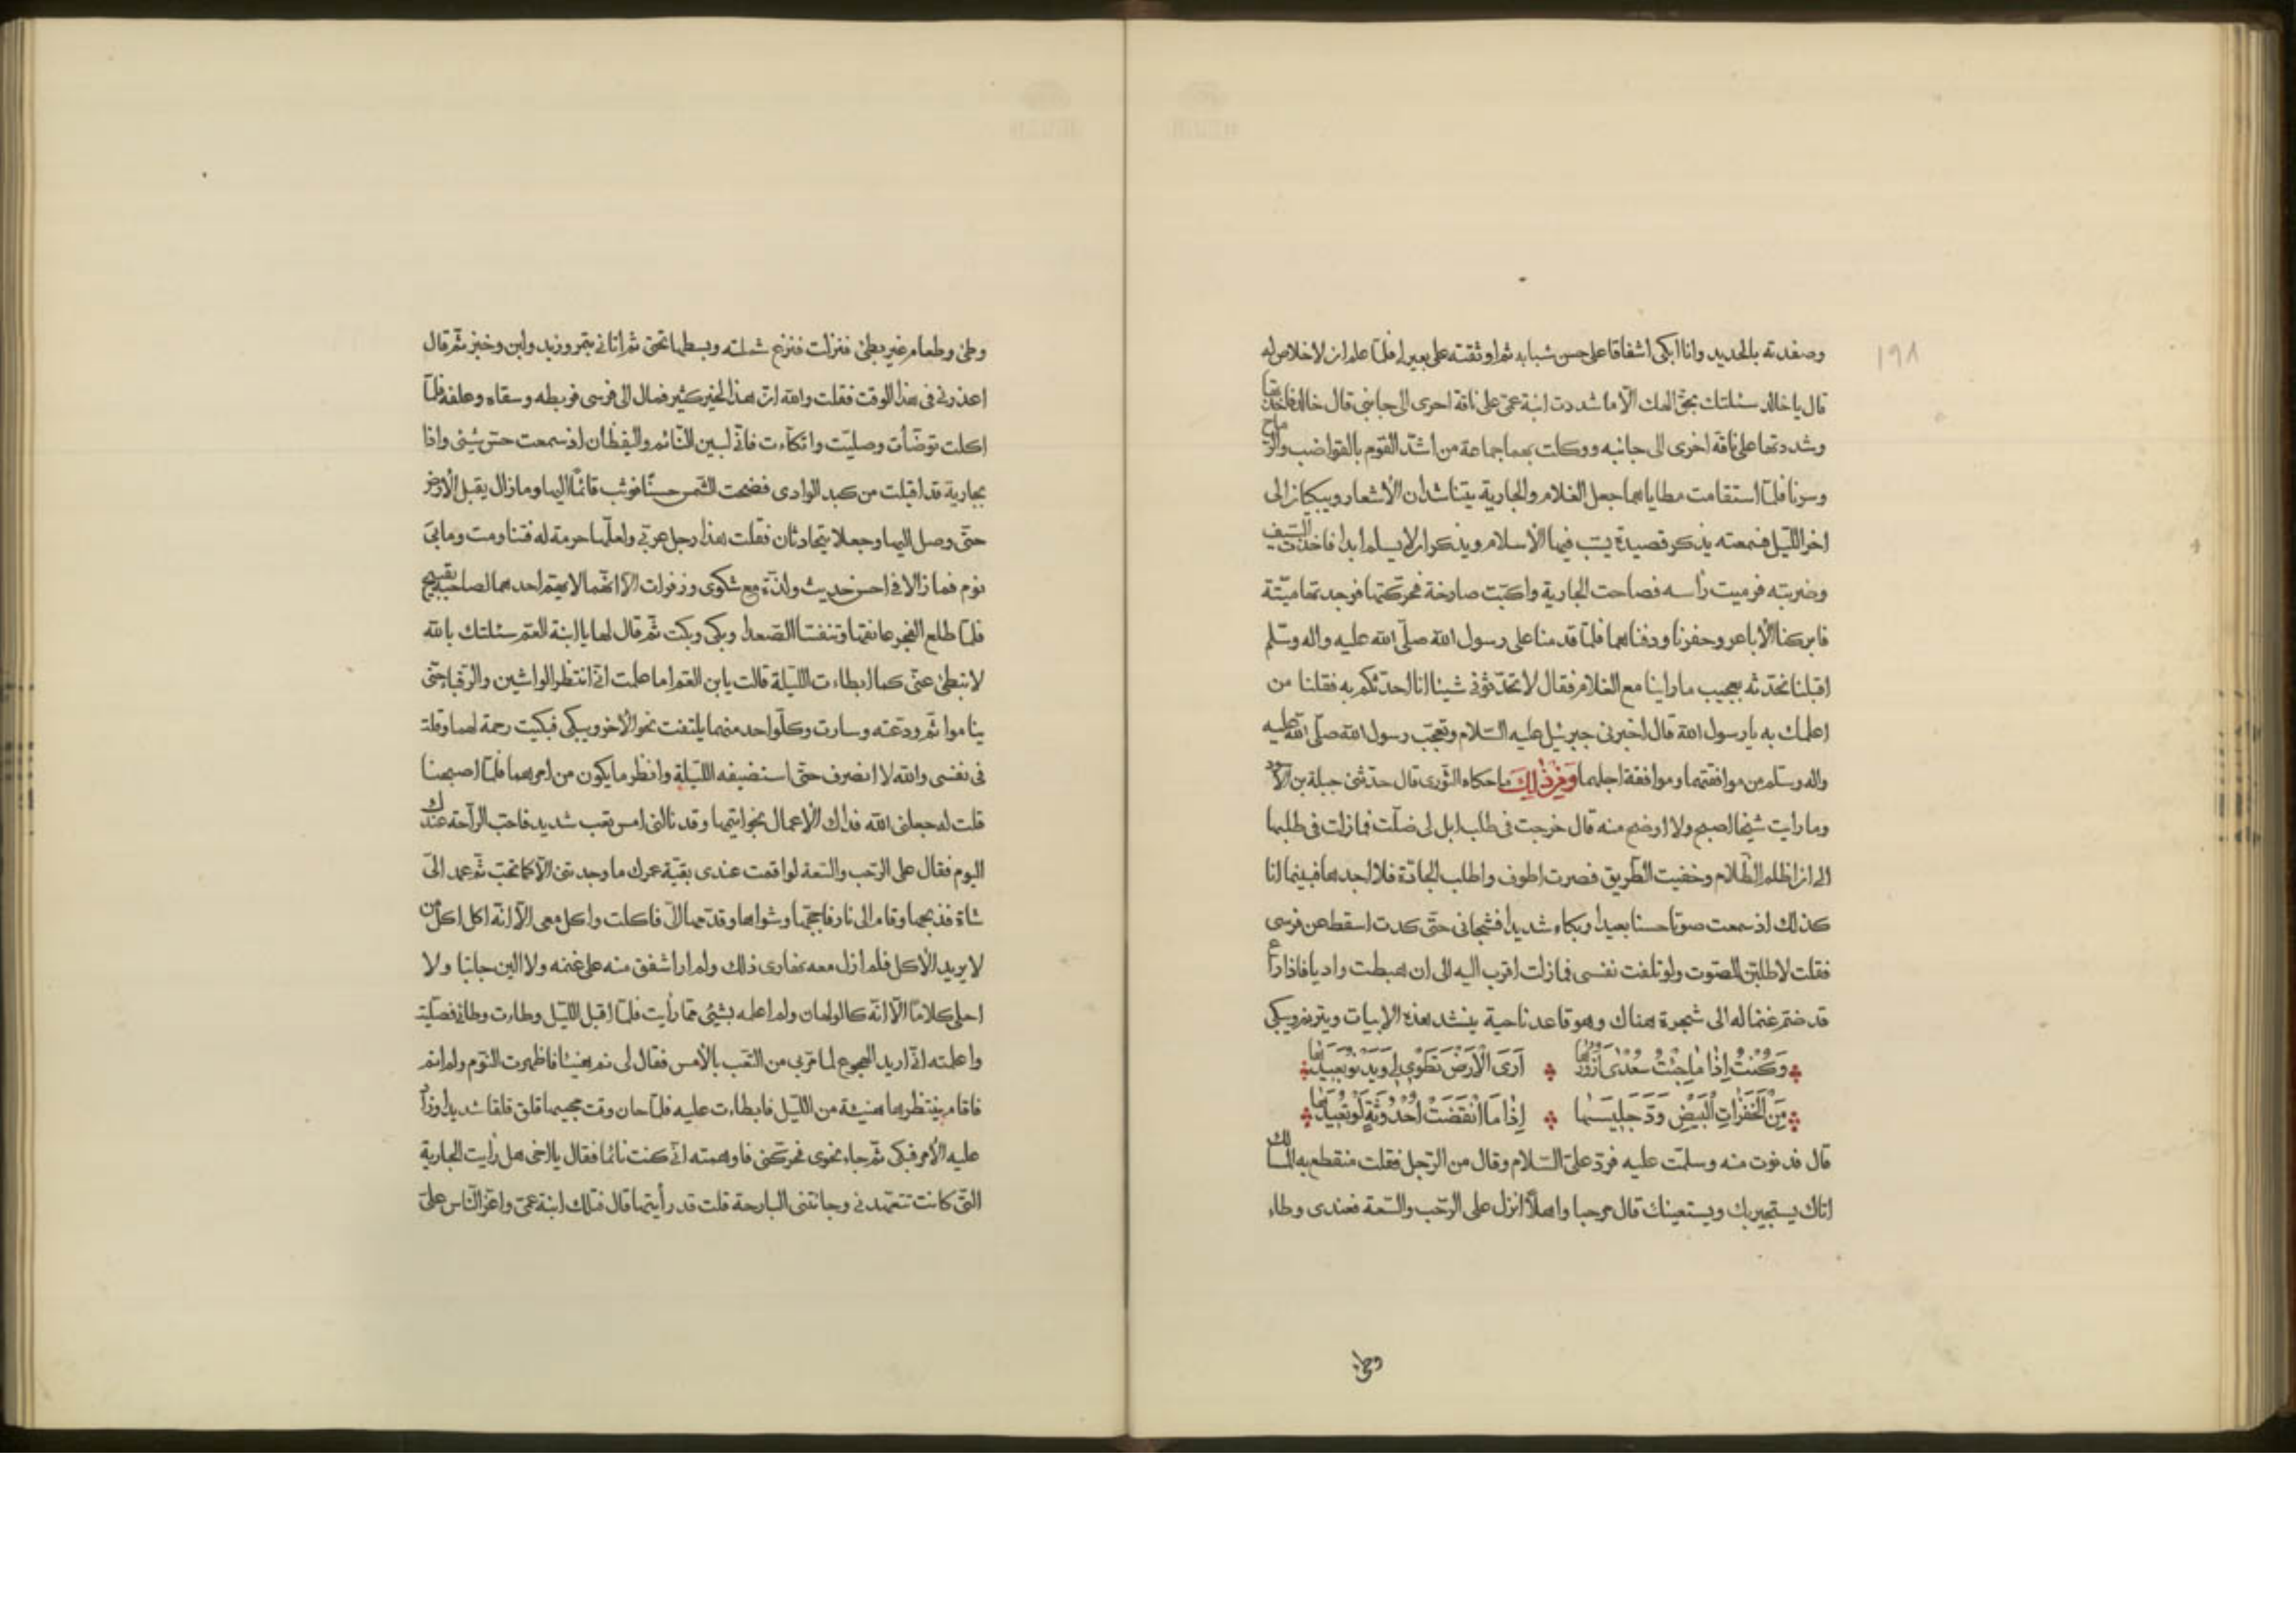 ١٩٨
وصفدته بالحديد وانا ابكى اشفاقا على حسن شبابه ثم اوثقته على بعير له فلمّا علم ان لا خلاص له
قال يا خالد سئلتك بحق الهك الّا ما شددت ابنة عمّى على ناقة اخرى الى جانبى قال خالد فاخذتها
وشددتها على ناقة اخرى الى جانبه ووكلت بهما جماعة من اشدّ القوم بالقواضب والرماح
وسرنا فلمّا استقامت مطاياهما جعل الغلام والجارية يتناشدان الأشعار ويبكيان الى
اخر الليل فسمعته يذكر قصيدة يسب فيها الأسلام ويذكر ان لا يسلم ابدا فاخذت السّيف
وضربته فرميت رأسه فصاحت الجارية واكبّت صارخة فحركتها فوجدتها ميّتة
فابركنا الأباعر وحفرنا ودفناهما فلمّا قدمنا على رسول الله صلّى الله عليه واله وسلّم
اقبلنا نحدّثه بعجيب ما راينا مع الغلام فقال لا تحدّثونى شيئا انا احدثكم به فقلنا من
اعلمك به يا رسول الله قال اخبرنى جبرئيل عليه السّلام وتعجّب رسول الله صلّى الله عليه
واله وسلّم من موافقتهما وموافقة اجلهما ومن ذلك ما حكاه الثّورى قال حدّثنى جبلة بن الأسود
وما رايت شيخا اصبح ولا اوضح منه قال خرجت فى طلب ابل لى ضلّت فمازلت فى طلبها
الى ان اظلم الظّلام وخفيت الطّريق فصرت اطوف واطلب الجادّة فلا اجدها فبينما انا
كذلك اذ سمعت صوتا حسنا بعيدا وبكاء شديدا فشجانى حتّى كدت اسقط عن فرسى
فقلت لاطلبنّ الصّوت ولو تلفت نفسى فمازلت اقرب اليه الى ان هبطت واديا فاذا راع
قد ضمّ غنما له الى شجرة هناك وهو قاعد ناحية ينشد هذه الابيات ويترنم ويبكى
وَكُنْتُ اِذٰا مٰا جِئْتُ سُعْدٰى اَزُورُهٰا ۞ اَرَى الْاَرْضَ تَطْوِى لِى وَيَدْنُو بَعِيدُهٰا
مِنَ الْخَفِرٰاتِ الْبِيْضِ وَدَّ جَلِيسُهٰا ۞ اِذٰا مَا انْقَضَتْ اُحْدُوثَةٌ لَوْ تُعِيدُهٰا
قال فدنوت منه وسلمّت عليه فردّ علىّ السّلام وقال من الرّجل فقلت منقطع به المسالك
اتاك يستجير بك ويستعينك قال مرحبا واهلًا انزل على الرّحب والسّعة فعندى وطاء
وطئ
وطئ وطعام غير بطئ فنزلت فنزع شملته وبسطها تحتى ثم اتانى بتمر وزبد ولبن وخبز ثمّ قال
اعذرنى فى هذا الوقت فقلت والله انّ هذا لخير كثير فمال الى فرسى فربطه وسقاه وعلفه فلمّا
اكلت توضّأت وصليّت واتكأت فانّى لبين النّائم واليقظان اذ سمعت حسّ شئى واذا
بجارية قد اقبلت من كبد الوادى فضحت الشّمس حسنًا فوثب قائمًا اليها ومازال يقبل الأرض
حتّى وصل اليها وجعلا يتحادثان فقلت هذا رجل عربّى ولعلّها حرمة له فتناومت وما بى
نوم فما زالا فى احسن حديث ولذّة مع شكوى وزفرات الّا انّهما لا يهتم احدهما لصاحبه بقبيح
فلمّا طلع الفجر عانقها وتنفسّا الصّعدا وبكى وبكت ثمّ قال لها يا ابنة العمّ سئلتك بالله
لا تبطئ عنّى كما ابطاءت اللّيلة قالت يا بن العمّ اما علمت انّى انتظر الواشين والرّقبا حتّى
يناموا ثم ودعته وسارت وكلّ واحد منهما يلتفت نحو الأخر ويبكى فبكيت رحمة لهما وقلت
فى نفسى والله لا انصرف حتّى استضيفه اللّيلة وانظر ما يكون من امرهما فلمّا اصبحنا
قلت له جعلنى الله فداك الأعمال بخواتيمها وقد نالنى امس تعب شديد فاحبّ الرّاحة عندك
اليوم فقال على الرّحب والسّعة لو اقمت عندى بقيّة عمرك ما وجدتنى الّا كما تحبّ ثمّ عمد الى
شاة فذبحها وقام الى نار فاججّها وشواها وقدّمها الىّ فاكلت واكل معى الّا انّه اكل اكل من
لا يريد الأكل فلم ازل معه نهارى ذلك ولم ار اشفق منه على غنمه ولا الين جانبا ولا
احلى كلامًا الّا انّه كالولهان ولم اعلمه بشيئ ممّا رأيت فلمّا اقبل اللّيل وطاءت وطائى فصلّيت
واعلمته انّى اريد الهجوع لما مرّ بى من التّعب بالأمس فقال لى نم هنيئا فاظهرت النّوم ولم انم
فاقام ينتظرها هنيئة من اللّيل فابطاءت عليه فلمّا حان وقت مجيئها قلق قلقا شديدا وزاد
عليه الأمر فبكى ثمّ جاء نحوى فحركنى فاوهمته انّى كنت نائما فقال يا اخى هل رأيت الجارية
التّى كانت تتعهّدنى وجائتنى البارحة قلت قد رأيتها قال فتلك ابنة عمّى واعزّ النّاس علىّ